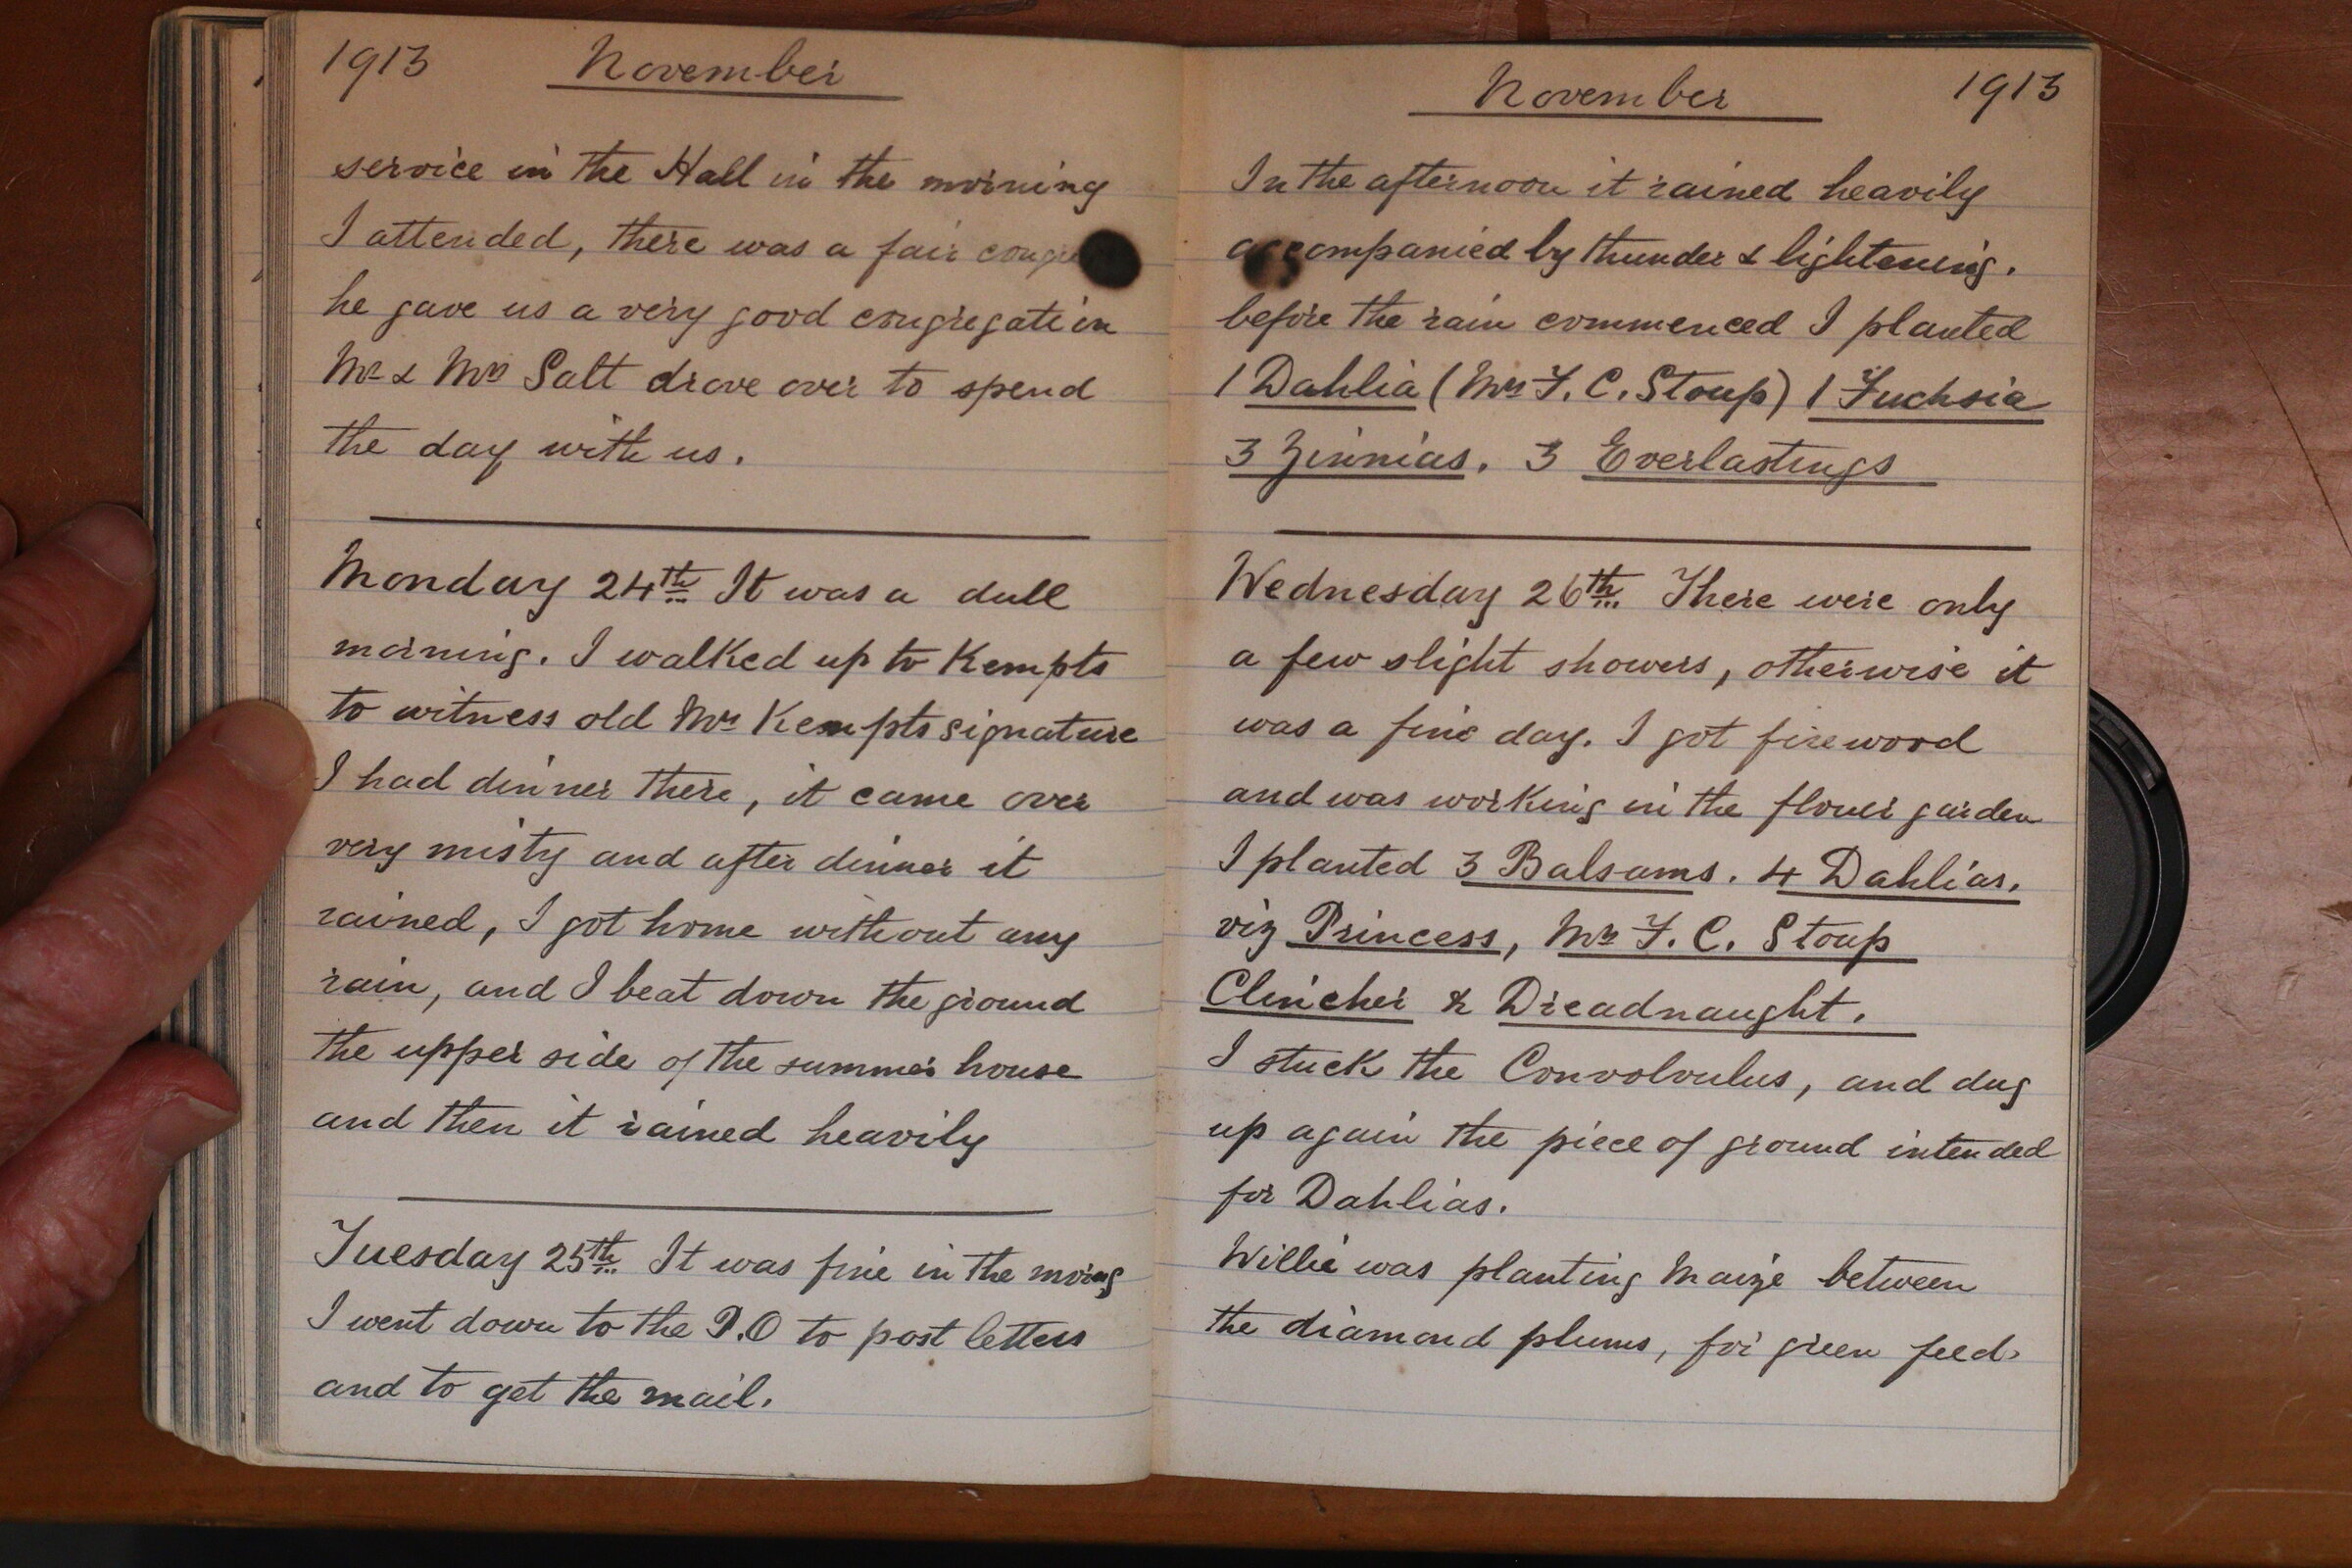 1913 November
service in the Hall in the morning
I attended, there was a fair
he gave us a very good congregation
Mr & Mrs Salt drove over to spend
the day with us.
Monday 24th It was a dull
morning. I walked up to Kempts
to witness old Mrs Kempts signature
I had dinner there, it came over
very misty and after dinner it
rained, I got home without any
rain, and I beat down the ground
the upper side of the summer house
and then it rained heavily
Tuesday 25th It was fine in the morng
I went down to the P.O to post letters
and to get the mail.
November 1913
In the afternoon it rained heavily
accompanied by thunder & lightening.
before the rain commenced I planted
1 Dahlia (Mrs F. C. Stoup) 1 Fuchsia
3 Zinnias. 3 Everlastings
Wednesday 26th There were only
a few slight showers, otherwise it
was a fine day. I got firewood
and was working in the flower garden
I planted 3 Balsams. 4 Dahlias.
viz Princess, Mrs F. C. Stoup
Clincher & Dreadnaught.
I stuck the Convolvulus, and dug
up again the piece of ground intended
for Dahlias.
Willie was planting Maize between
the diamond plums, for green feed.